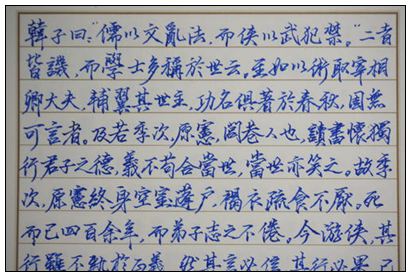 韓子曰：“儒以文亂法，而俠以武犯禁。”二者
皆譏，而學士多稱於世云。至如以術取宰相
卿大夫，輔翼其世主，功名俱著於春秋，固無
可言者。及若季次，原憲，閭巷人也，讀書懷獨
行君子之德，義不苟合當世，當世亦笑之。故季
次，原憲終身空室蓬户，褐衣疏食不厭。死
而已四百余年，而弟子志之不倦。今游俠，其
行雖不軌於正義，然其言必信，其行必果，已